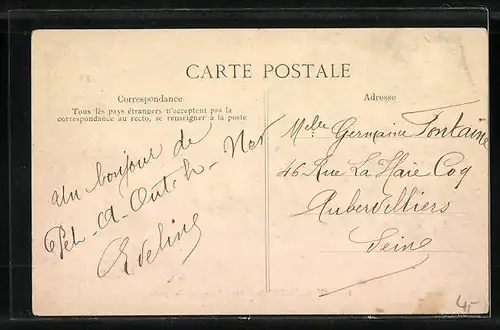 CARTE POSTALE
Correspondance
Tous les pays étrangers n'acceptent pas la
correspondance au recto, se renseigner à la poste
Adresse
un bonjour de
Eveline
Melle Germaine Fontaine
46 Rue La Haie Coq
Aubervilliers
Seine
4-